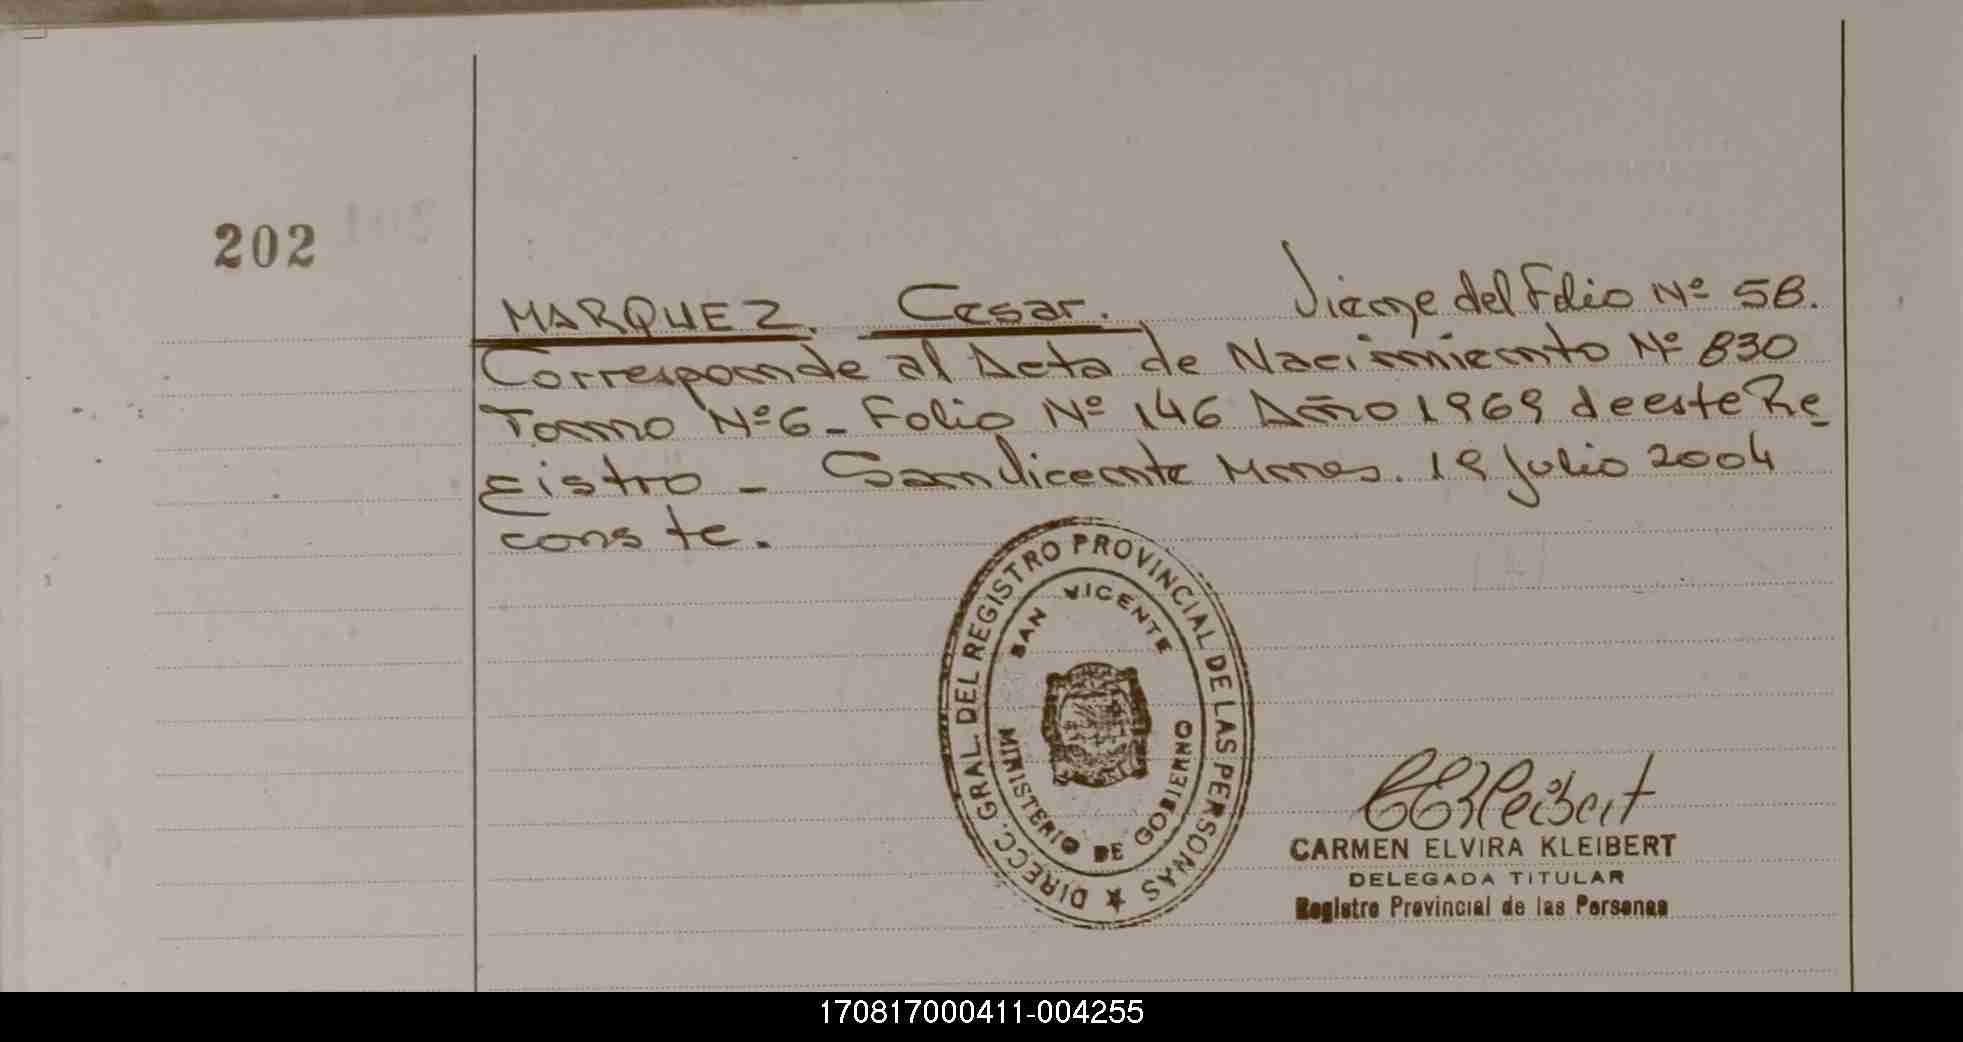 202
MARQUEZ. Cesar. Viene del Folio Nº 58.
Corresponde al Acta de Nacimiento Nº 830
Tomo Nº 6 - Folio Nº 146 Año 1969 de este Re
gistro - San Vicente Mnes. 19 Julio 2004
conste.
DIRECC. GRAL. DEL REGISTRO PROVINCIAL DE LAS PERSONAS ★
SAN VICENTE
MINISTERIO DE GOBIERNO
CEKleibert
CARMEN ELVIRA KLEIBERT
DELEGADA TITULAR
Registro Provincial de las Personas
170817000411-004255